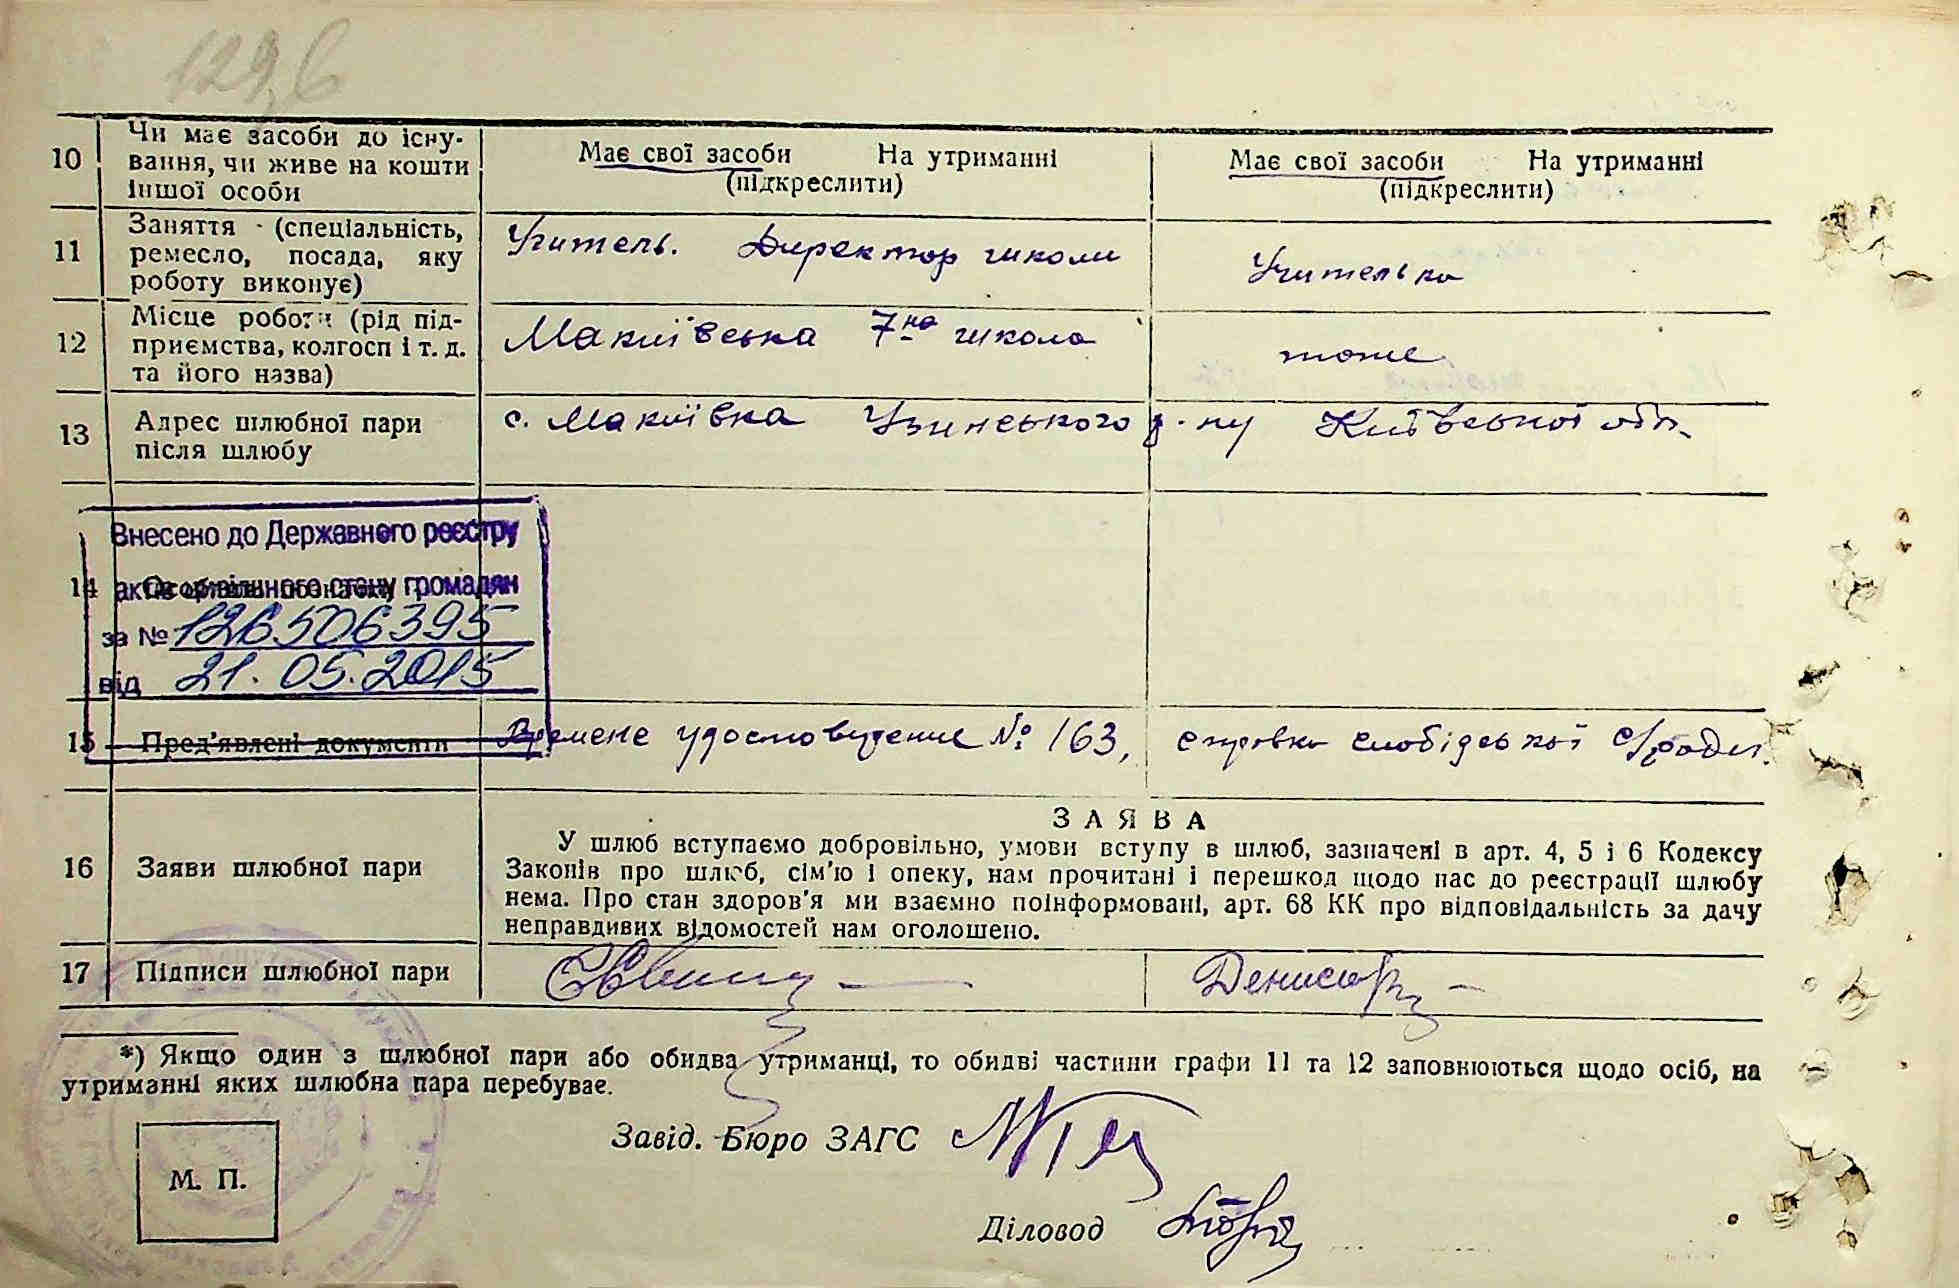 129,6
10 Чи має засоби до існу-
вання, чи живе на кошти
іншої особи
Має свої засоби На утриманні
(підкреслити)
Має свої засоби На утриманні
(підкреслити)
11 Заняття (спеціальність,
ремесло, посада, яку
роботу виконує)
Учитель. Директор школи
Учителька
12 Місце роботи (рід під-
приємства, колгосп і т. д.
та його назва)
Макиївська 7на школа
тоже
13 Адрес шлюбної пари
після шлюбу
с. Макиївка Узинського р-ну Київської обл.
Внесено до Державного реєстру
14 актів цивільного стану громадян
за № 126506395
від 21.05.2015
15 Пред'явлені документи
Времене удостовудение № 163, справка слобідської с/ради.
16 Заяви шлюбної пари
ЗАЯВА
У шлюб вступаємо добровільно, умови вступу в шлюб, зазначені в арт. 4, 5 і 6 Кодексу
Законів про шлюб, сім'ю і опеку, нам прочитані і перешкод щодо нас до реєстрації шлюбу
нема. Про стан здоров'я ми взаємно поінформовані, арт. 68 КК про відповідальність за дачу
неправдивих відомостей нам оголошено.
17 Підписи шлюбної пари
*) Якщо один з шлюбної пари або обидва утриманці, то обидві частини графи 11 та 12 заповнюються щодо осіб, на
утриманні яких шлюбна пара перебуває.
Завід. Бюро ЗАГС
М. П.
Діловод